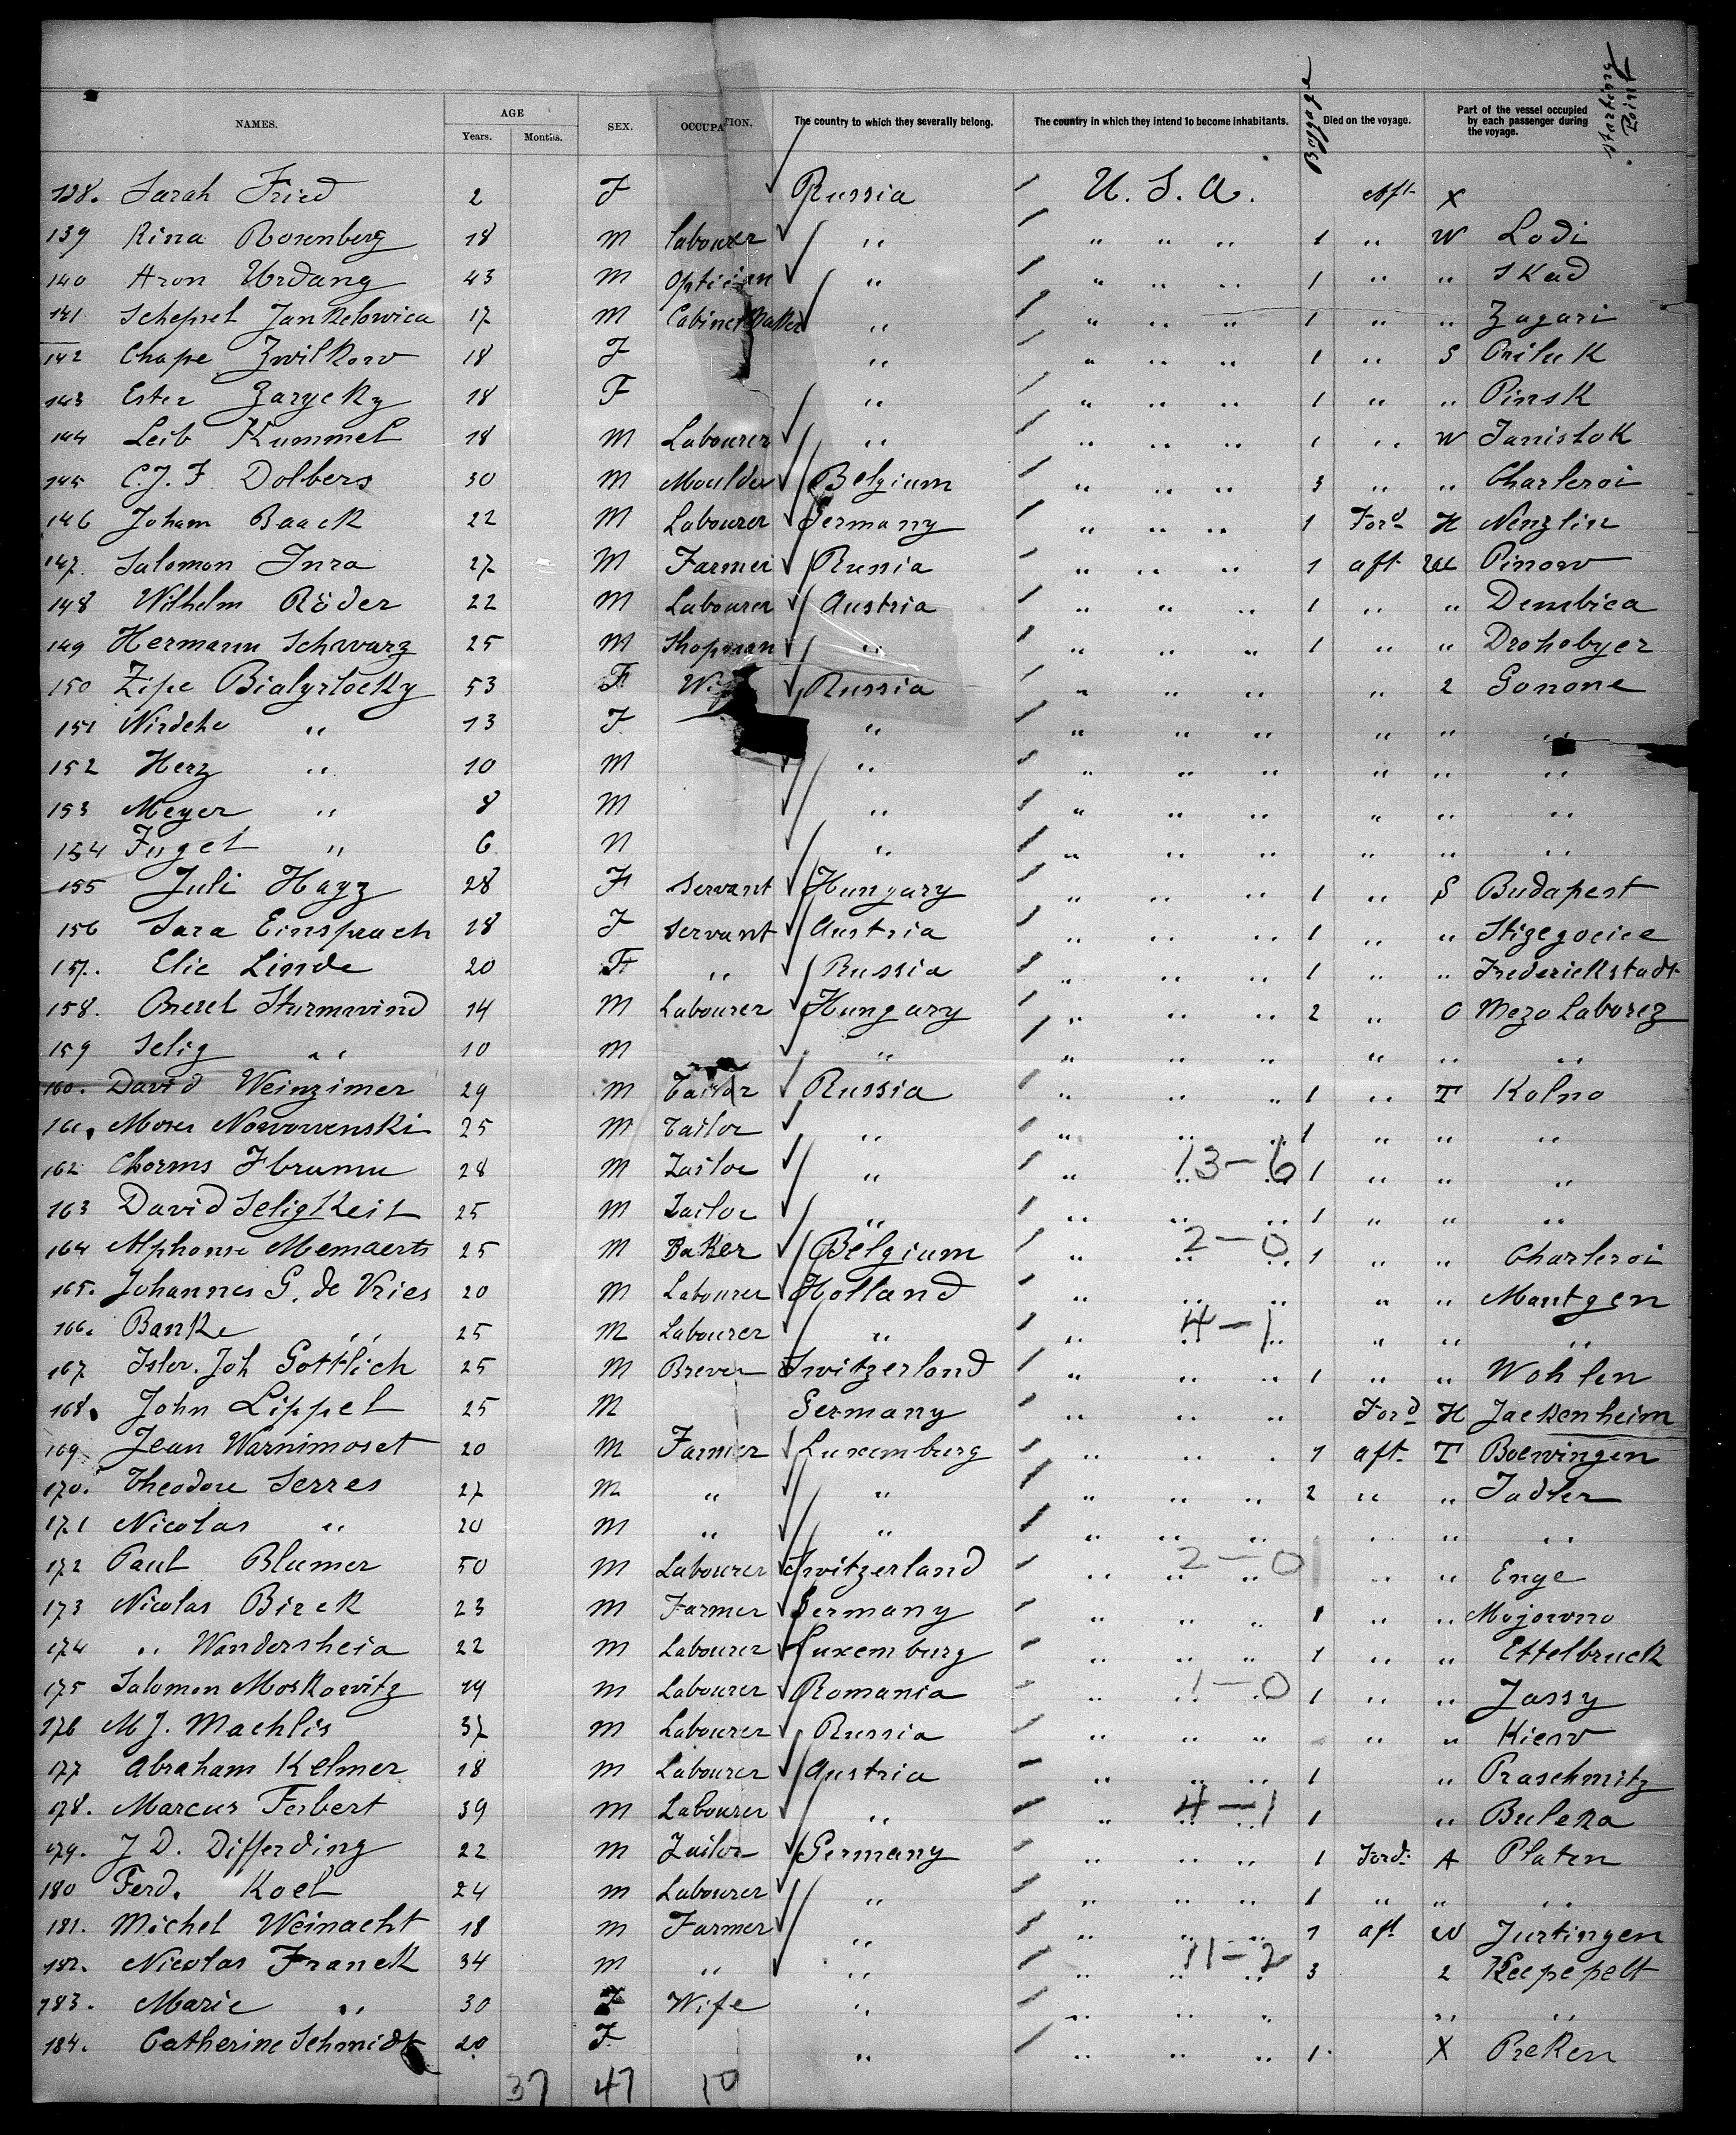 NAMES. AGE Years. Months. SEX. OCCUPATION. The country to which they severally belong. The country in which they intend to become inhabitants. Baggage Died on the voyage. Part of the vessel occupied by each passenger during the voyage. Starting Point.
138. Sarah Fried 2 F Russia U. S. A. Aft X
139 Rina Rosenberg 18 M Labourer " " " " 1 " W Lodi
140 Aron Urdang 43 M Optician " " " " 1 " " Skud
141 Schepsel Jankelowica 17 M Cabinet Maker " " " " 1 " " Zagari
142 Chape Zwilkow 18 F " " " " 1 " S Priluk
143 Ester Zarycky 18 F " " " " 1 " " Pinsk
144 Leib Kummel 18 M Labourer " " " " 1 " W Janistok
145 C. J. F. Dolbers 30 M Moulder Belgium " " " 3 " " Charleroi
146 Joham Baack 22 M Labourer Germany " " " 1 Ford H Nenzlin
147. Salomon Inra 27 M Farmer Russia " " " 1 aft W Pinow
148 Wilhelm Röder 22 M Labourer Austria " " " 1 " " Dembica
149 Hermann Schwarz 25 M Shopman " " " " 1 " " Drohobyer
150 Zipe Bialyrlocky 53 F Russia " " " " 2 Gonone
151 Nirdche " 13 F " " " " " " "
152 Herz " 10 M " " " " " " "
153 Meyer " 8 M " " " " " " "
154 Fuget " 6 M " " " " " " "
155 Juli Hayz 28 F Servant Hungary " " " 1 " S Budapest
156 Sara Einspruch 18 F Servant Austria " " " 1 " "
157. Elie Linde 20 F " Russia " " " 1 " " Frederickstadt
158. Sturmwind 14 M Labourer Hungary " " " 2 " O Mezo Laborez
159 Selig " 10 M " " " " " " "
160. David Weinzimer 29 M Tailor Russia " " " 1 " T Kolno
161. Moses Nowowenski 25 M Tailor " " " " 1 " " "
162 Chorms 28 M Tailor " " " " 13-6 1 " " "
163 David Seligkeit 25 M Tailor " " " " 1 " " "
164 Alphonse Memaerts 25 M Baker Belgium " " " 2-0 1 " " Charleroi
165. Johannes G. de Vries 20 M Labourer Holland " " " " " Mantgen
166. Banke " 25 M Labourer " " " " 4-1 " " "
167 Isler. Joh Gottlich 25 M Brever Switzerland " " " 1 " " Wohlen
168. John Lippel 25 M Germany " " " Ford H Jackenheim
169 Jean Warnimoset 20 M Farmer Luxemburg " " " 1 aft T Boewingen
170. Theodore Serres 27 M " " " " " 2 " " Tadler
171 Nicolas " 20 M " " " " " " " "
172 Paul Blumer 50 M Labourer Switzerland " " " 2-0 " " Enge
173 Nicolas Birck 23 M Farmer Germany " " " 1 " " Mojowno
174 " Wandersheia 22 M Labourer Luxemburg " " " 1 " " Ettelbruck
175 Salomon Moskowitz 19 M Labourer Romania " " " 1-0 1 " " Jassy
176 M J. Machlis 37 M Labourer Russia " " " " " Kiew
177 Abraham Kelmer 18 M Labourer Austria " " " 1 " Praschnitz
178. Marcus Ferbert 39 M Labourer " " " " 4-1 1 " Buleza
179. J D. Differding 22 M Tailor Germany " " " 1 Ford. A Platen
180 Ferd. Koel 24 M Labourer " " " " 1 " " "
181. Michel Weinacht 18 M Farmer " " " " 1 aft W Jurtingen
182. Nicolas Franck 34 M " " " " " 11-2 3 2 Keepepelt
183. Marie " 30 F Wife " " " " " "
184. Catherine Schmidt 20 F " " " " 1 X Preken
37 47 10